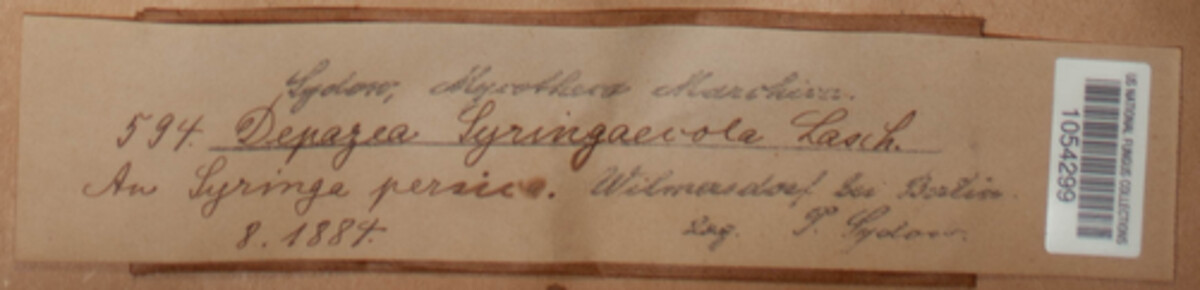 Sydow, Mycotheca Marchica.
594. Depazea Syringaecola Lasch.
An Syringa persica. Wilmersdorf bei Berlin.
8. 1884. Leg. P. Sydow.
US NATIONAL FUNGUS COLLECTIONS
1054299